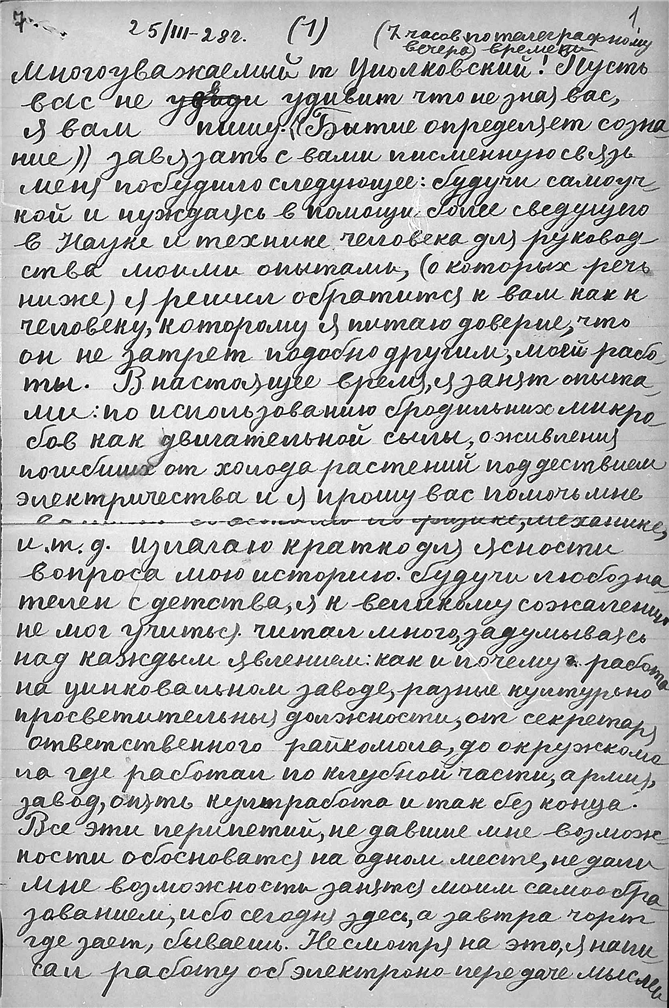 7. 1
25/III-28г. (1) (7 часов по телеграфному
вечера) времени
Многоуважаемый т Циолковский! Пусть
вас не удивит что не зная вас,
я вам пишу. ((Бытие определяет созна
ние)) завязать с вами писменную связь
меня побудило следующее: будучи самоуч-
кой и нуждаясь в помощи более сведущего
в Науке и технике человека для руковод
ства моими опытами, (о которых речь
ниже) я решил обратится к вам как к
человеку, которому я питаю доверие, что
он не затрет подобно другим, моей рабо-
ты. В настоящее время, я занят опыта-
ми: по использованию бродильних микро-
бов как двигательной силы, оживления
погибших от холода растений под деством
электричества и я прошу вас помочь мне
по физике, механике,
и.т.д. излагаю кратко для ясности
вопроса мою историю. будучи любозна
телен с детства, я к великому сожалению
не мог учиться. читал много, задумываясь
над каждым явлением: как и почему? работа
на цинковальном заводе, разные культурно
просветительныя должности, от секретаря
ответственного райкомола, до окружкомо
ла где работал по клубной части, армия,
завод, опять культработа и так без конца.
Все эти перипетий, не давшие мне возмож-
ности обосноватся на одном месте, не дали
мне возможность занятся моим самообра
зованием, ибо сегодня здесь, а завтра чорт
где зает, бываешь. Несмотря на это, я напи
сал работу об электроно-передаче мыслей